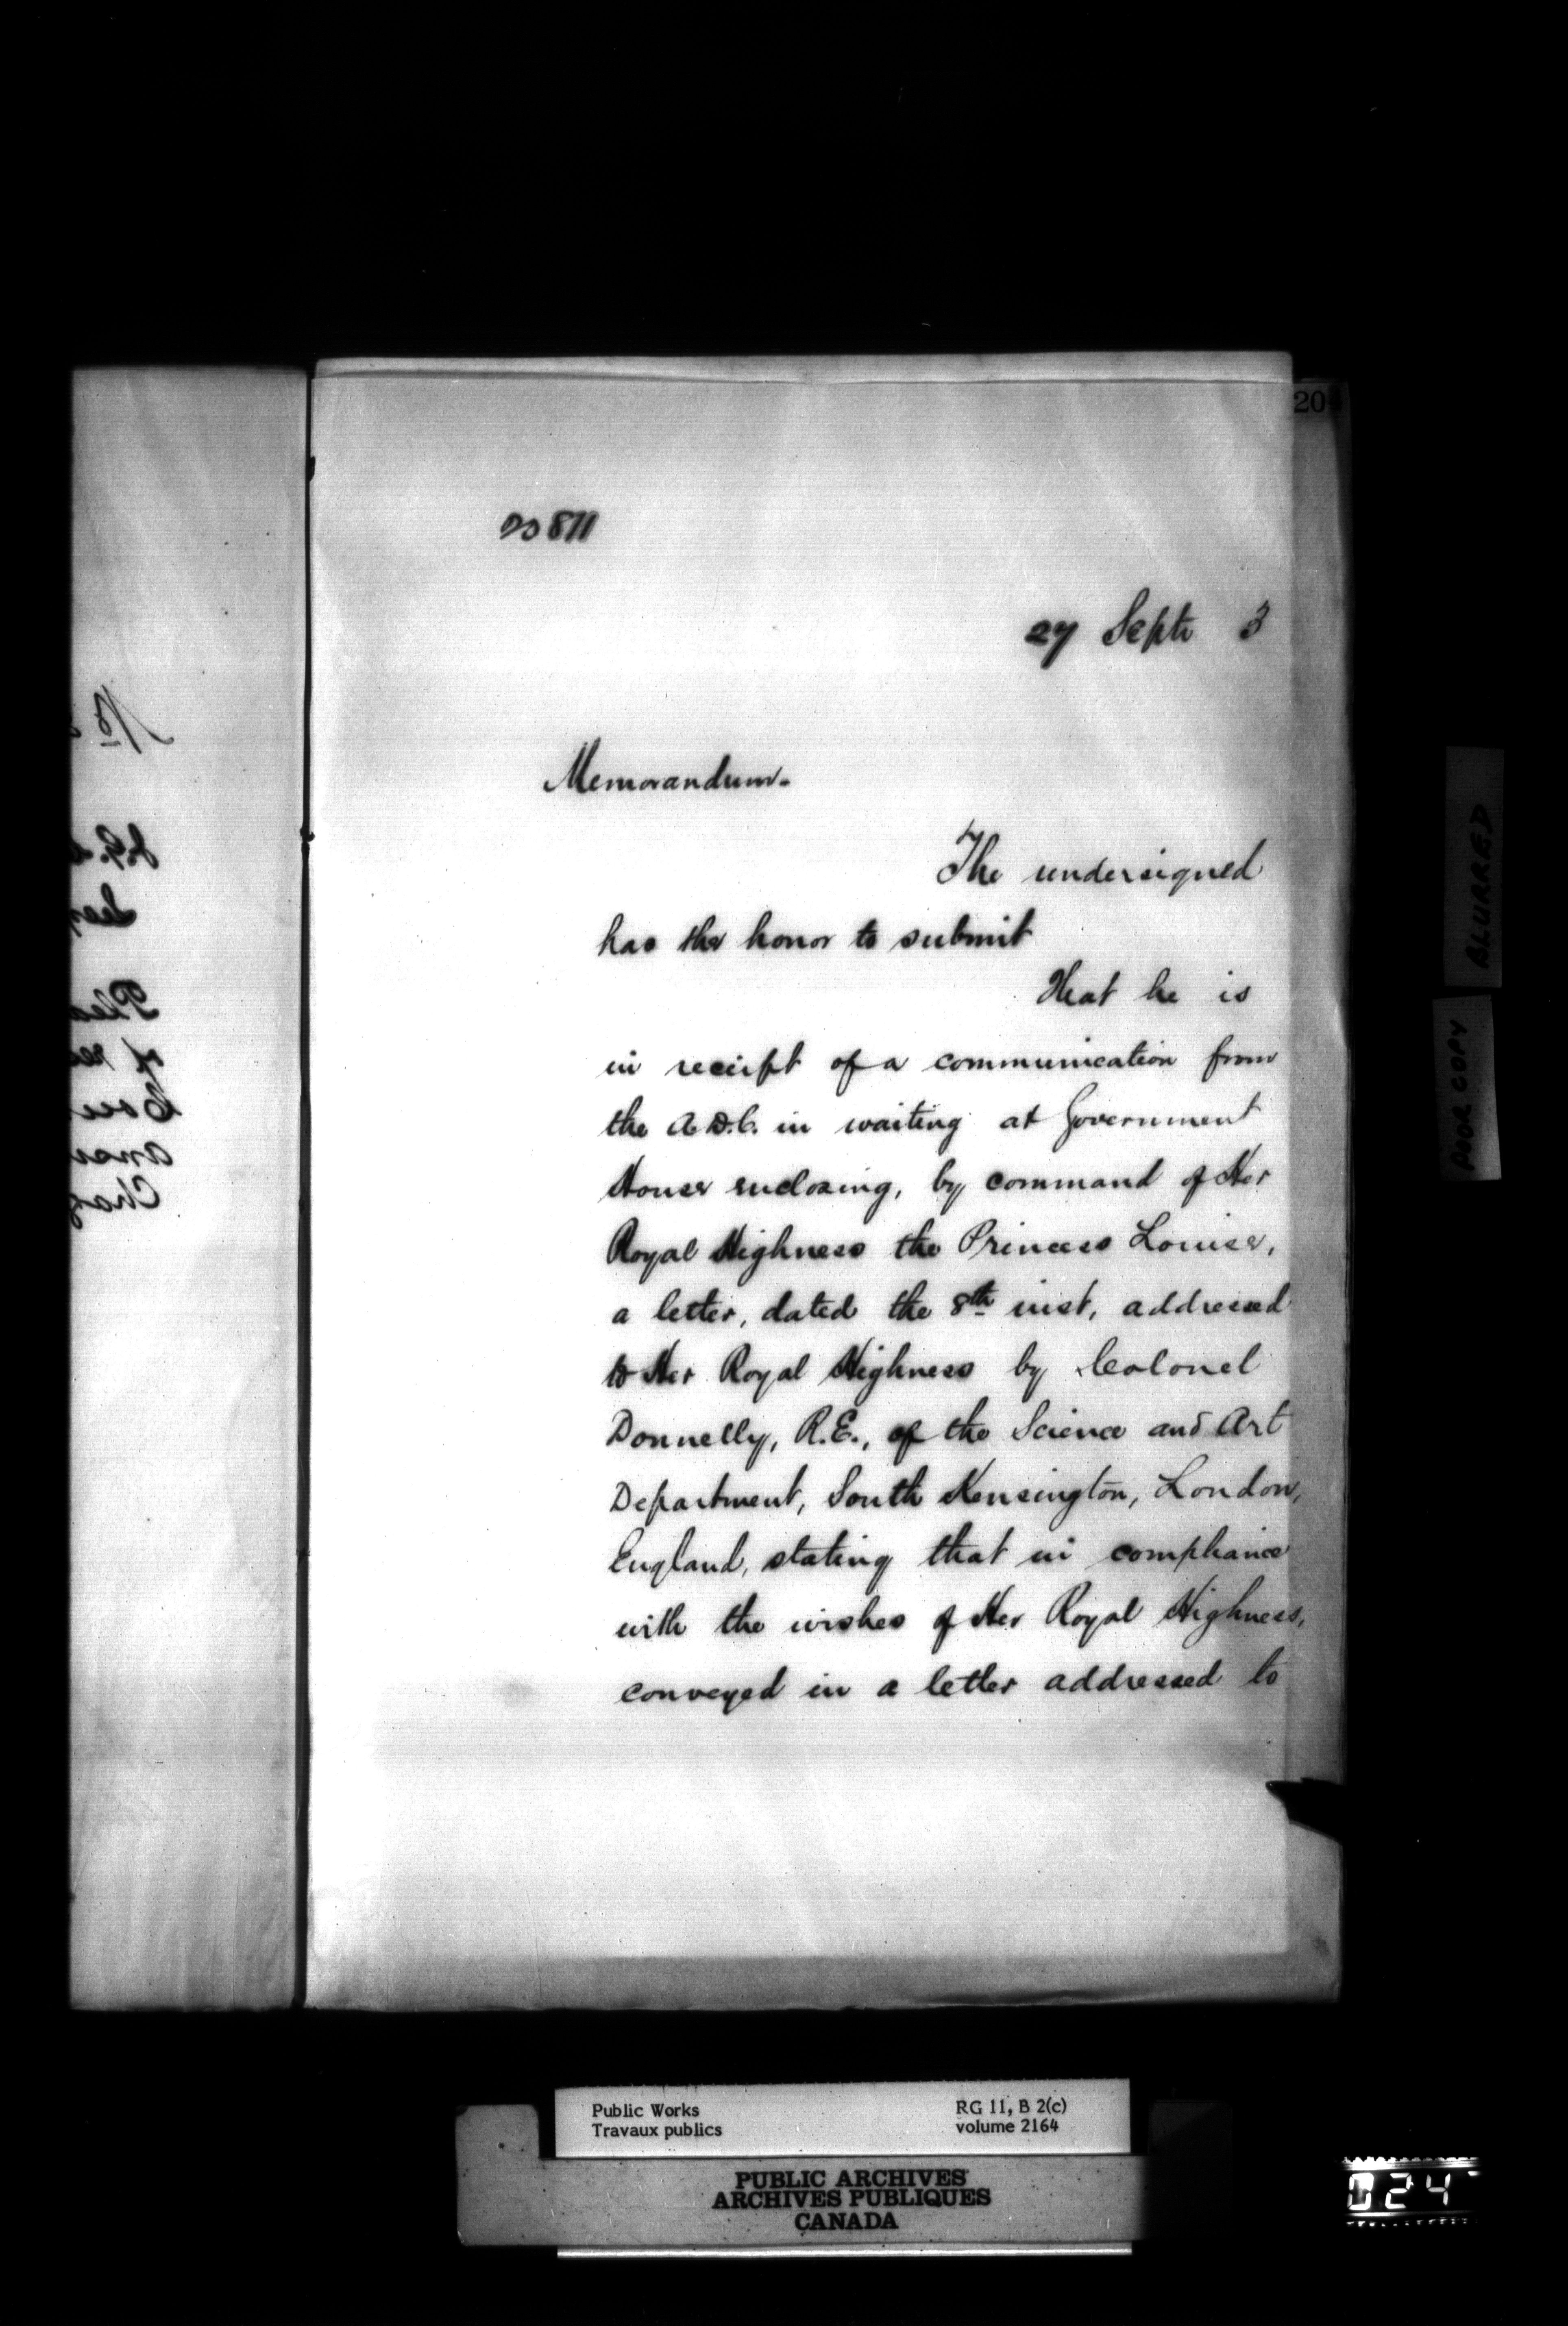 20871
27 Septr 3
Memorandum.
The undersigned
has the honor to submit
That he is
in receipt of a communication from
the A.D.C. in waiting at Government
House enclosing, by command of Her
Royal Highness the Princess Louise,
a letter, dated the 8th inst, addressed
to Her Royal Highness by Colonel
Donnelly, R.E., of the Science and Art
Department, South Kensington, London,
England, stating that in compliance
with the wishes of Her Royal Highness,
conveyed in a letter addressed to
BLURRED
POOR COPY
Public Works RG 11, B 2(c)
Travaux publics volume 2164
PUBLIC ARCHIVES
ARCHIVES PUBLIQUES
CANADA
024